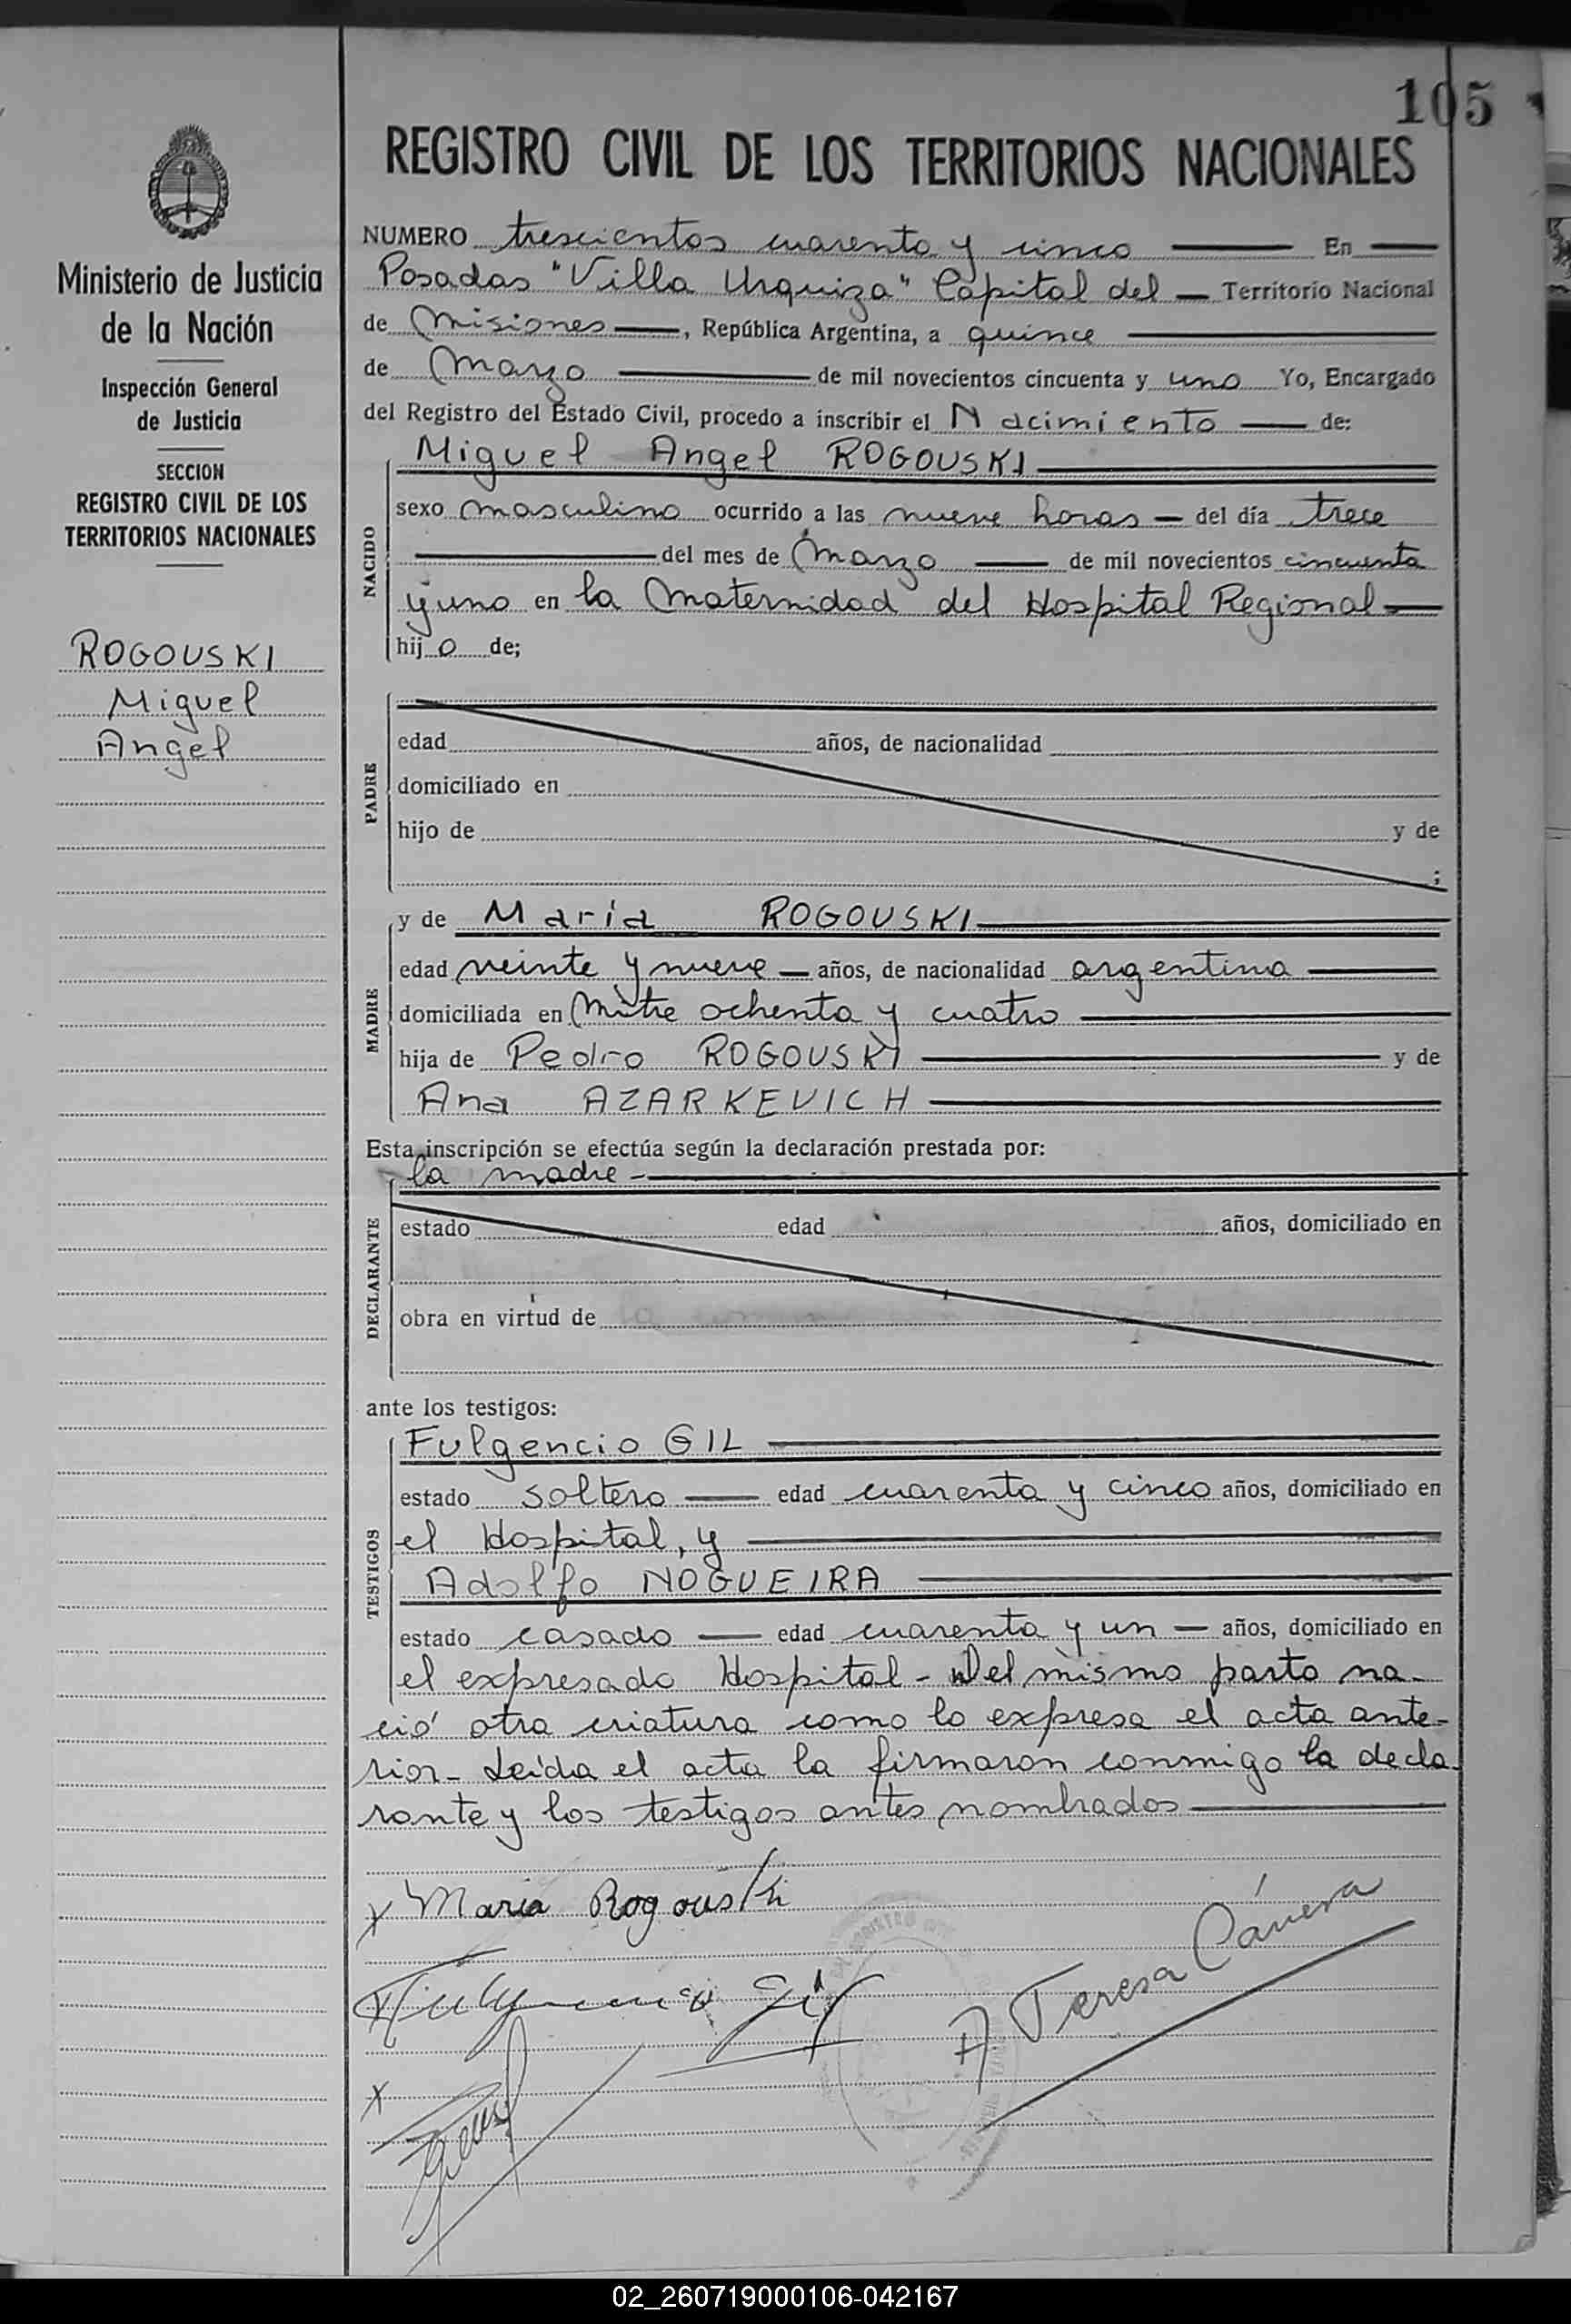 105
REGISTRO CIVIL DE LOS TERRITORIOS NACIONALES
Ministerio de Justicia
de la Nación
Inspección General
de Justicia
SECCION
REGISTRO CIVIL DE LOS
TERRITORIOS NACIONALES
ROGOUSKI
Miguel
Angel
NUMERO trescientos cuarenta y cinco — En —
Posadas "Villa Urquiza" Capital del — Territorio Nacional
de Misiones —, República Argentina, a quince —
de Marzo — de mil novecientos cincuenta y uno Yo, Encargado
del Registro del Estado Civil, procedo a inscribir el Nacimiento — de:
NACIDO
Miguel Angel ROGOUSKI —
sexo masculino ocurrido a las nueve horas — del día trece
— del mes de Marzo — de mil novecientos cincuenta
y uno en la Maternidad del Hospital Regional —
hijo de;
PADRE
edad años, de nacionalidad
domiciliado en
hijo de y de
;
MADRE
y de María ROGOUSKI —
edad veinte y nueve — años, de nacionalidad argentina —
domiciliada en Mitre ochenta y cuatro —
hija de Pedro ROGOUSKI — y de
Ana AZARKEVICH —
Esta inscripción se efectúa según la declaración prestada por:
la madre —
DECLARANTE
estado edad años, domiciliado en
obra en virtud de
ante los testigos:
TESTIGOS
Fulgencio GIL —
estado soltero — edad cuarenta y cinco años, domiciliado en
el Hospital, y —
Adolfo NOGUEIRA —
estado casado — edad cuarenta y un — años, domiciliado en
el expresado Hospital - Del mismo parto na-
ció otra criatura como lo expresa el acta ante-
rior - Leída el acta la firmaron conmigo la decla-
rante y los testigos antes nombrados —
x Maria Rogouski
x Fulgencio Gil
A Teresa Cánera
x
02_260719000106-042167